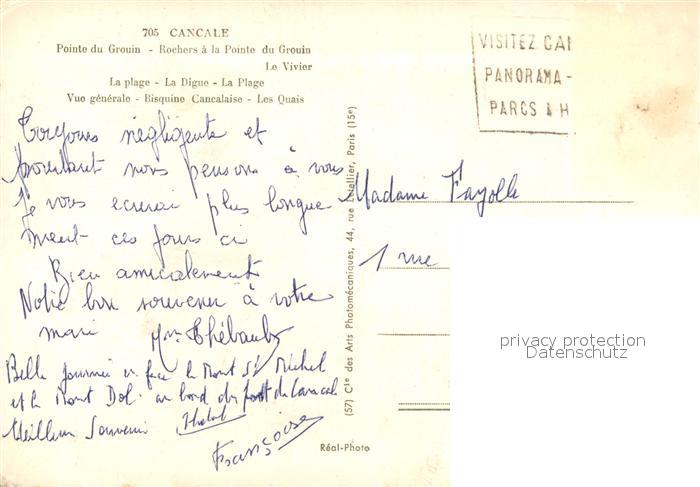 705 CANCALE
Pointe du Grouin - Rochers à la Pointe du Grouin
Le Vivier
La plage - La Digue - La Plage
Vue générale - Bisquine Cancalaise - Les Quais
VISITEZ CAN
PANORAMA -
PARCS & H
Toujours négligente et
pourtant nous pensons à vous
Je vous ecrirai plus longue
ment ces jours ci
Bien amicalement
Notre bon souvenir à votre
mari Mme Thébault
Belle journée en face le Mont St Michel
et le Mont Dol. au bord du port de Cancale
Meilleur Souvenir
Françoise
Madame Fayolle
1 rue
(57) Cie des Arts Photomécaniques, 44, rue Letellier, Paris (15e)
Réal-Photo
privacy protection
Datenschutz